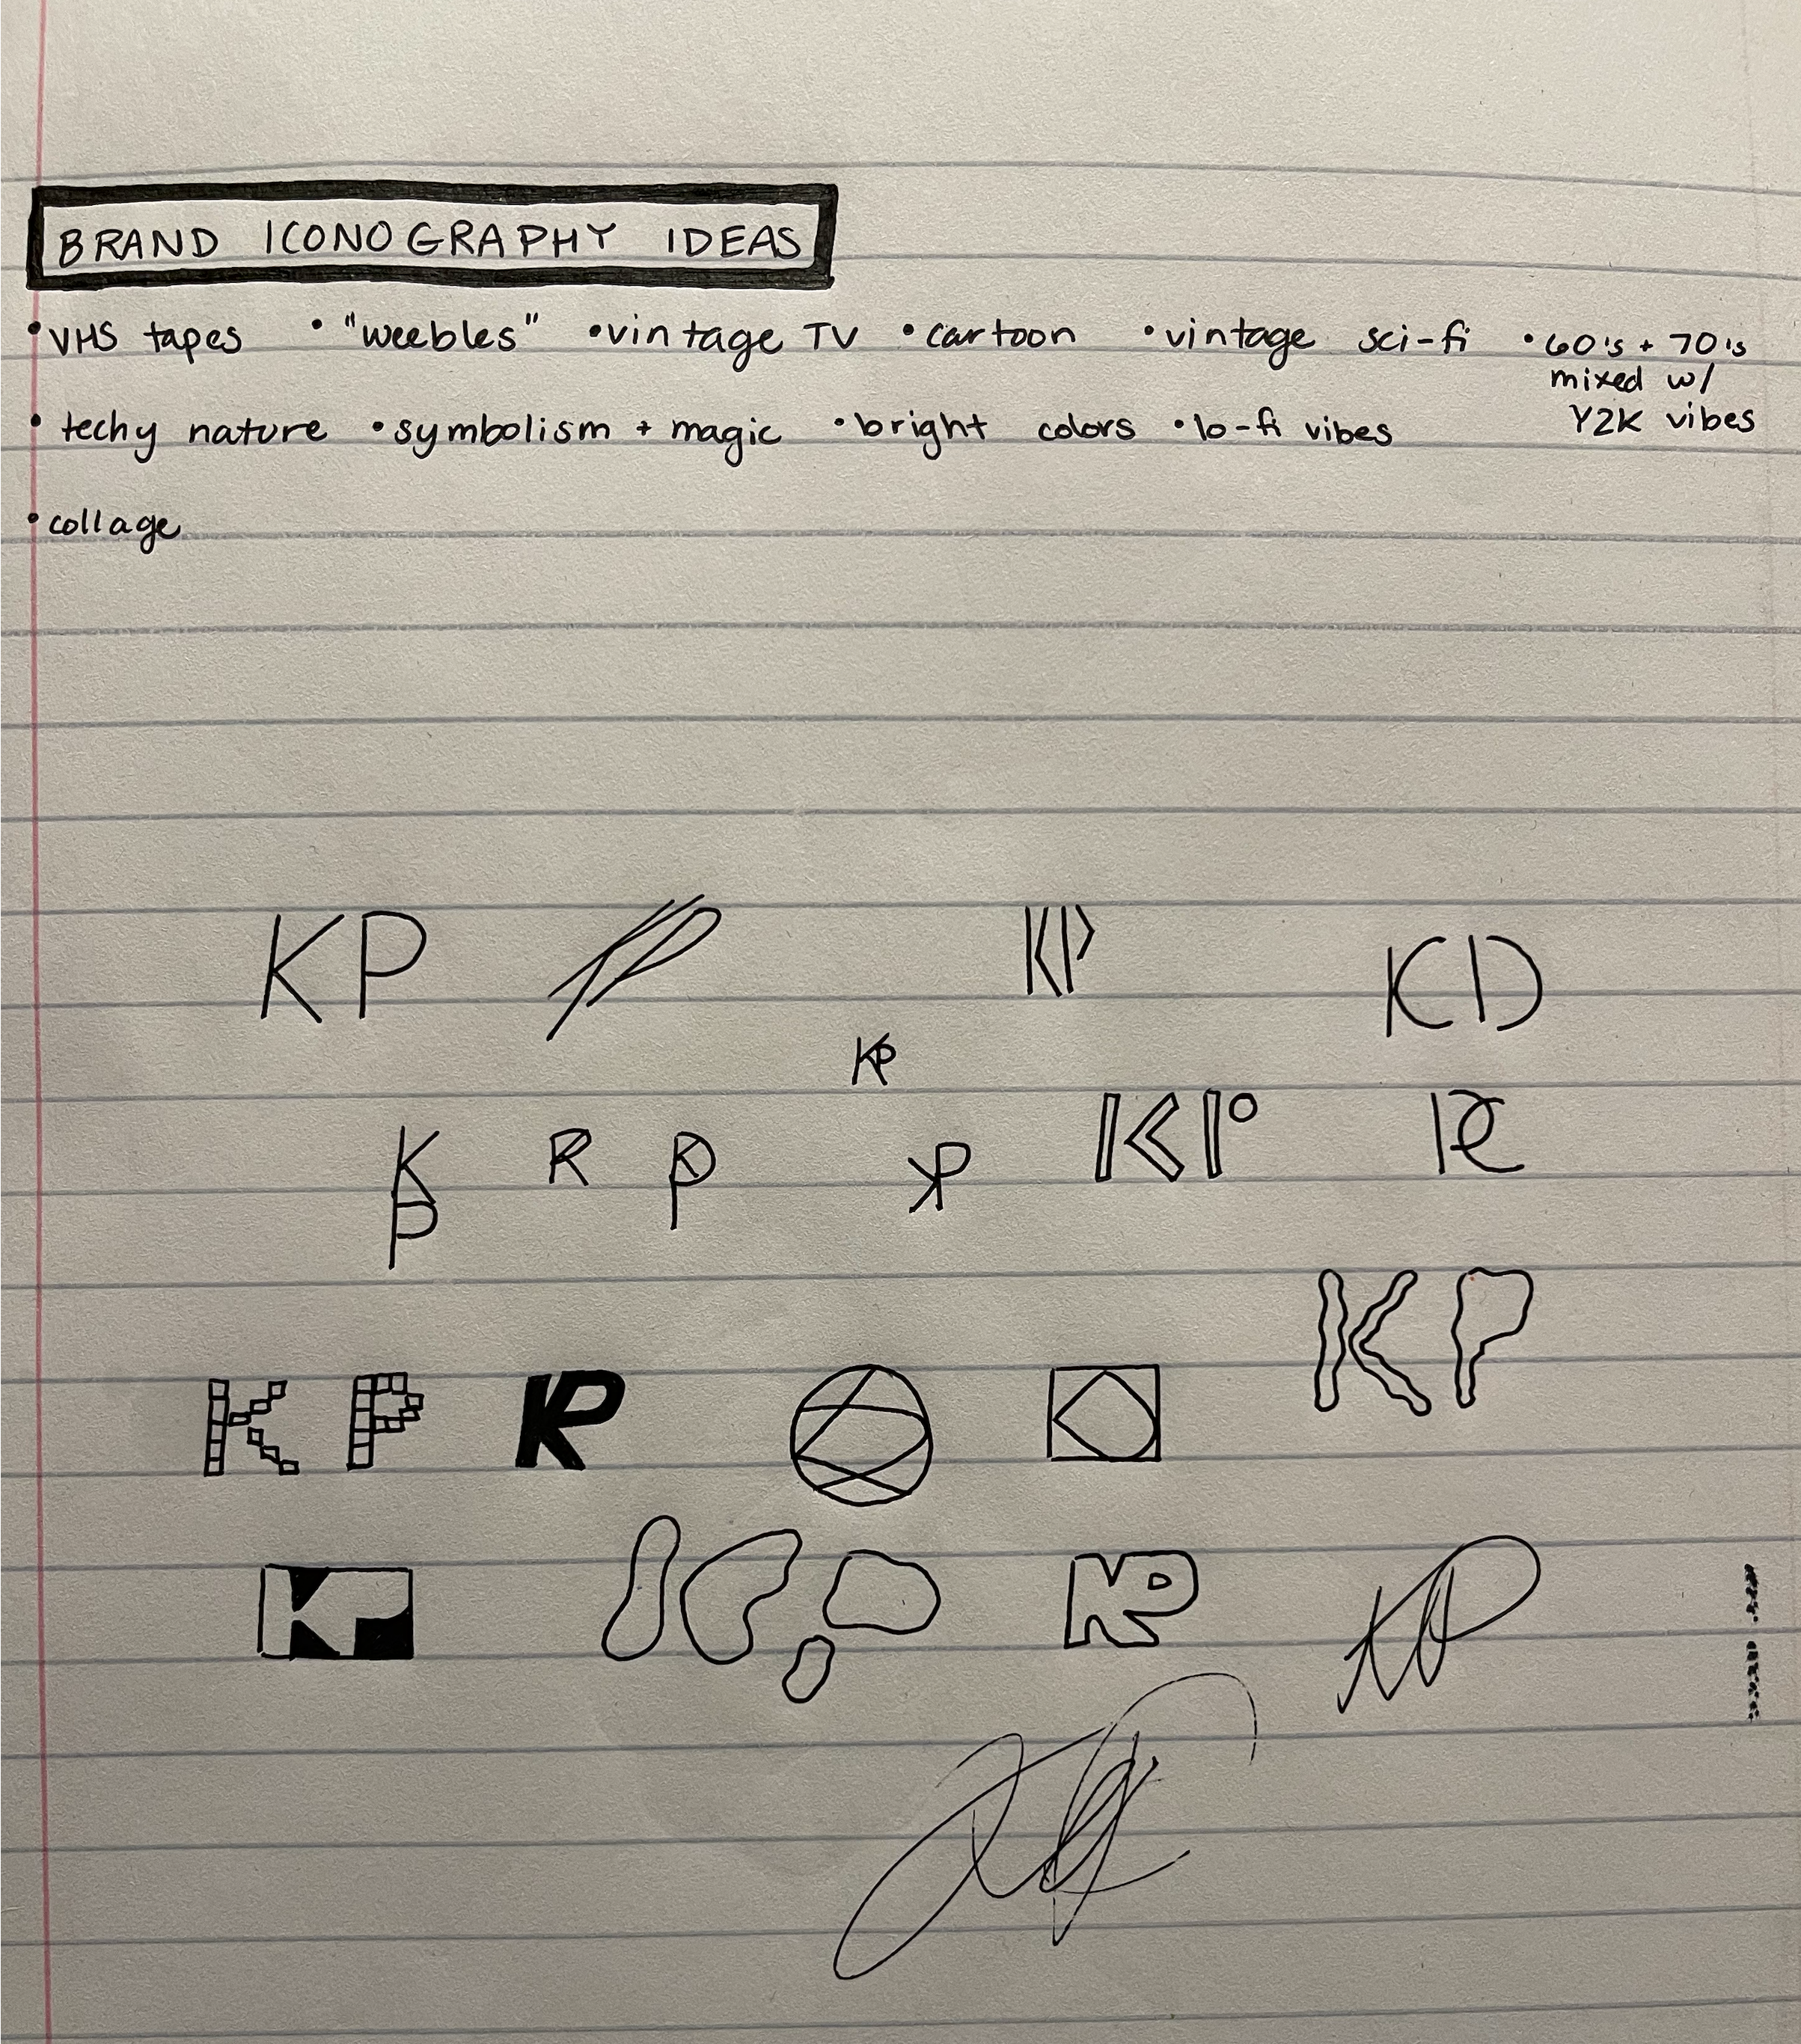 BRAND ICONOGRAPHY IDEAS
• VHS tapes • "weebles" • vintage TV • cartoon • vintage sci-fi • 60's + 70's
mixed w/
Y2K vibes
• techy nature • symbolism + magic • bright colors • lo-fi vibes
• collage
KP KP KP KP
KP
KP KP KP KP KP KP
KP
KP KP
KP KP KP KP